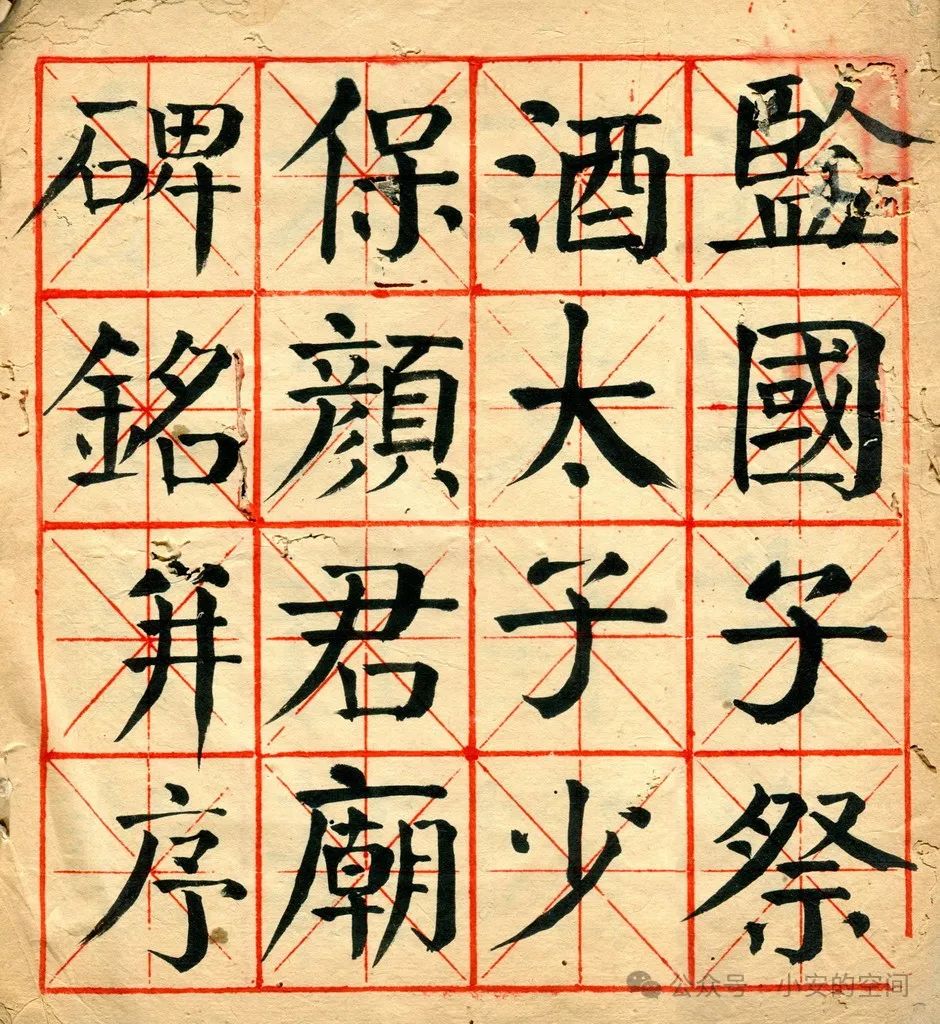 監國子祭
酒太子少
保顔君廟
碑銘并序
公众号·小安的空间